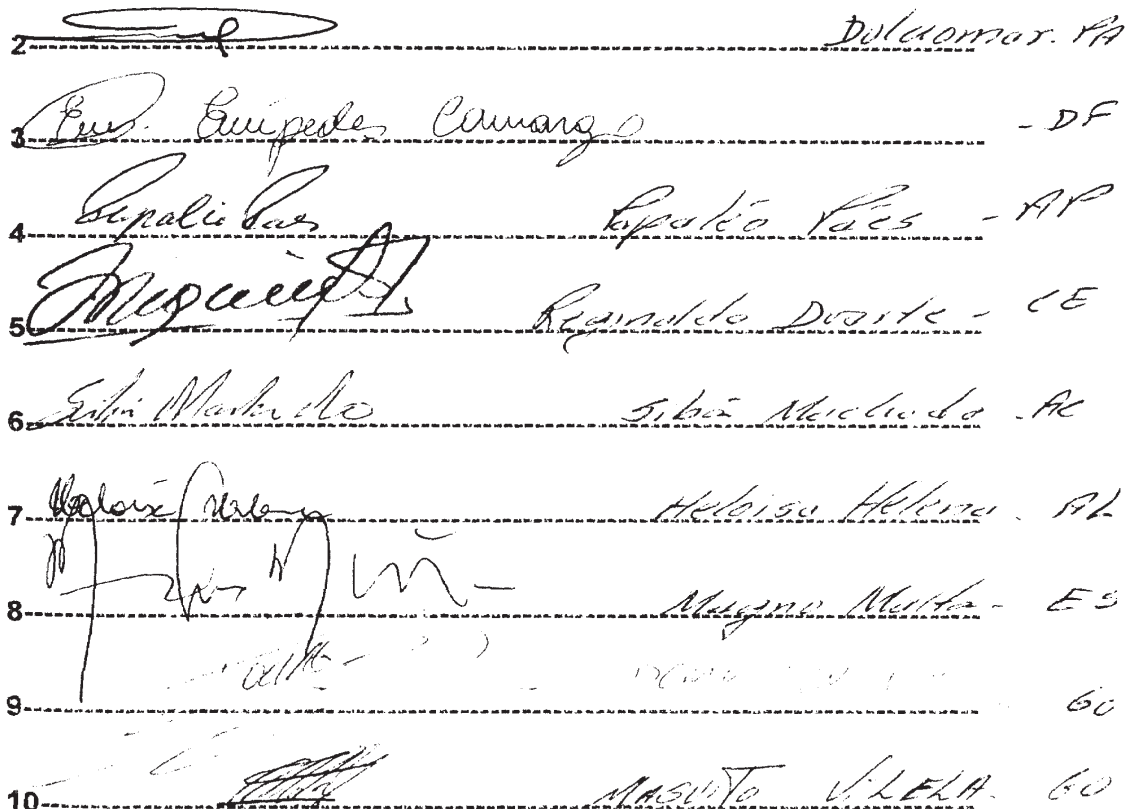 2 Dulciomar. PA
3 Eurípedes Camargo - DF
4 Papaléo Paes Papaléo Páes - AP
5 Reginaldo Duarte - CE
6 Sibá Machado Sibá Machado - AC
7 Heloísa Helena Heloisa Helena - AL
8 Magno Malta - ES
9 GO
10 MAGUITO VILELA - GO